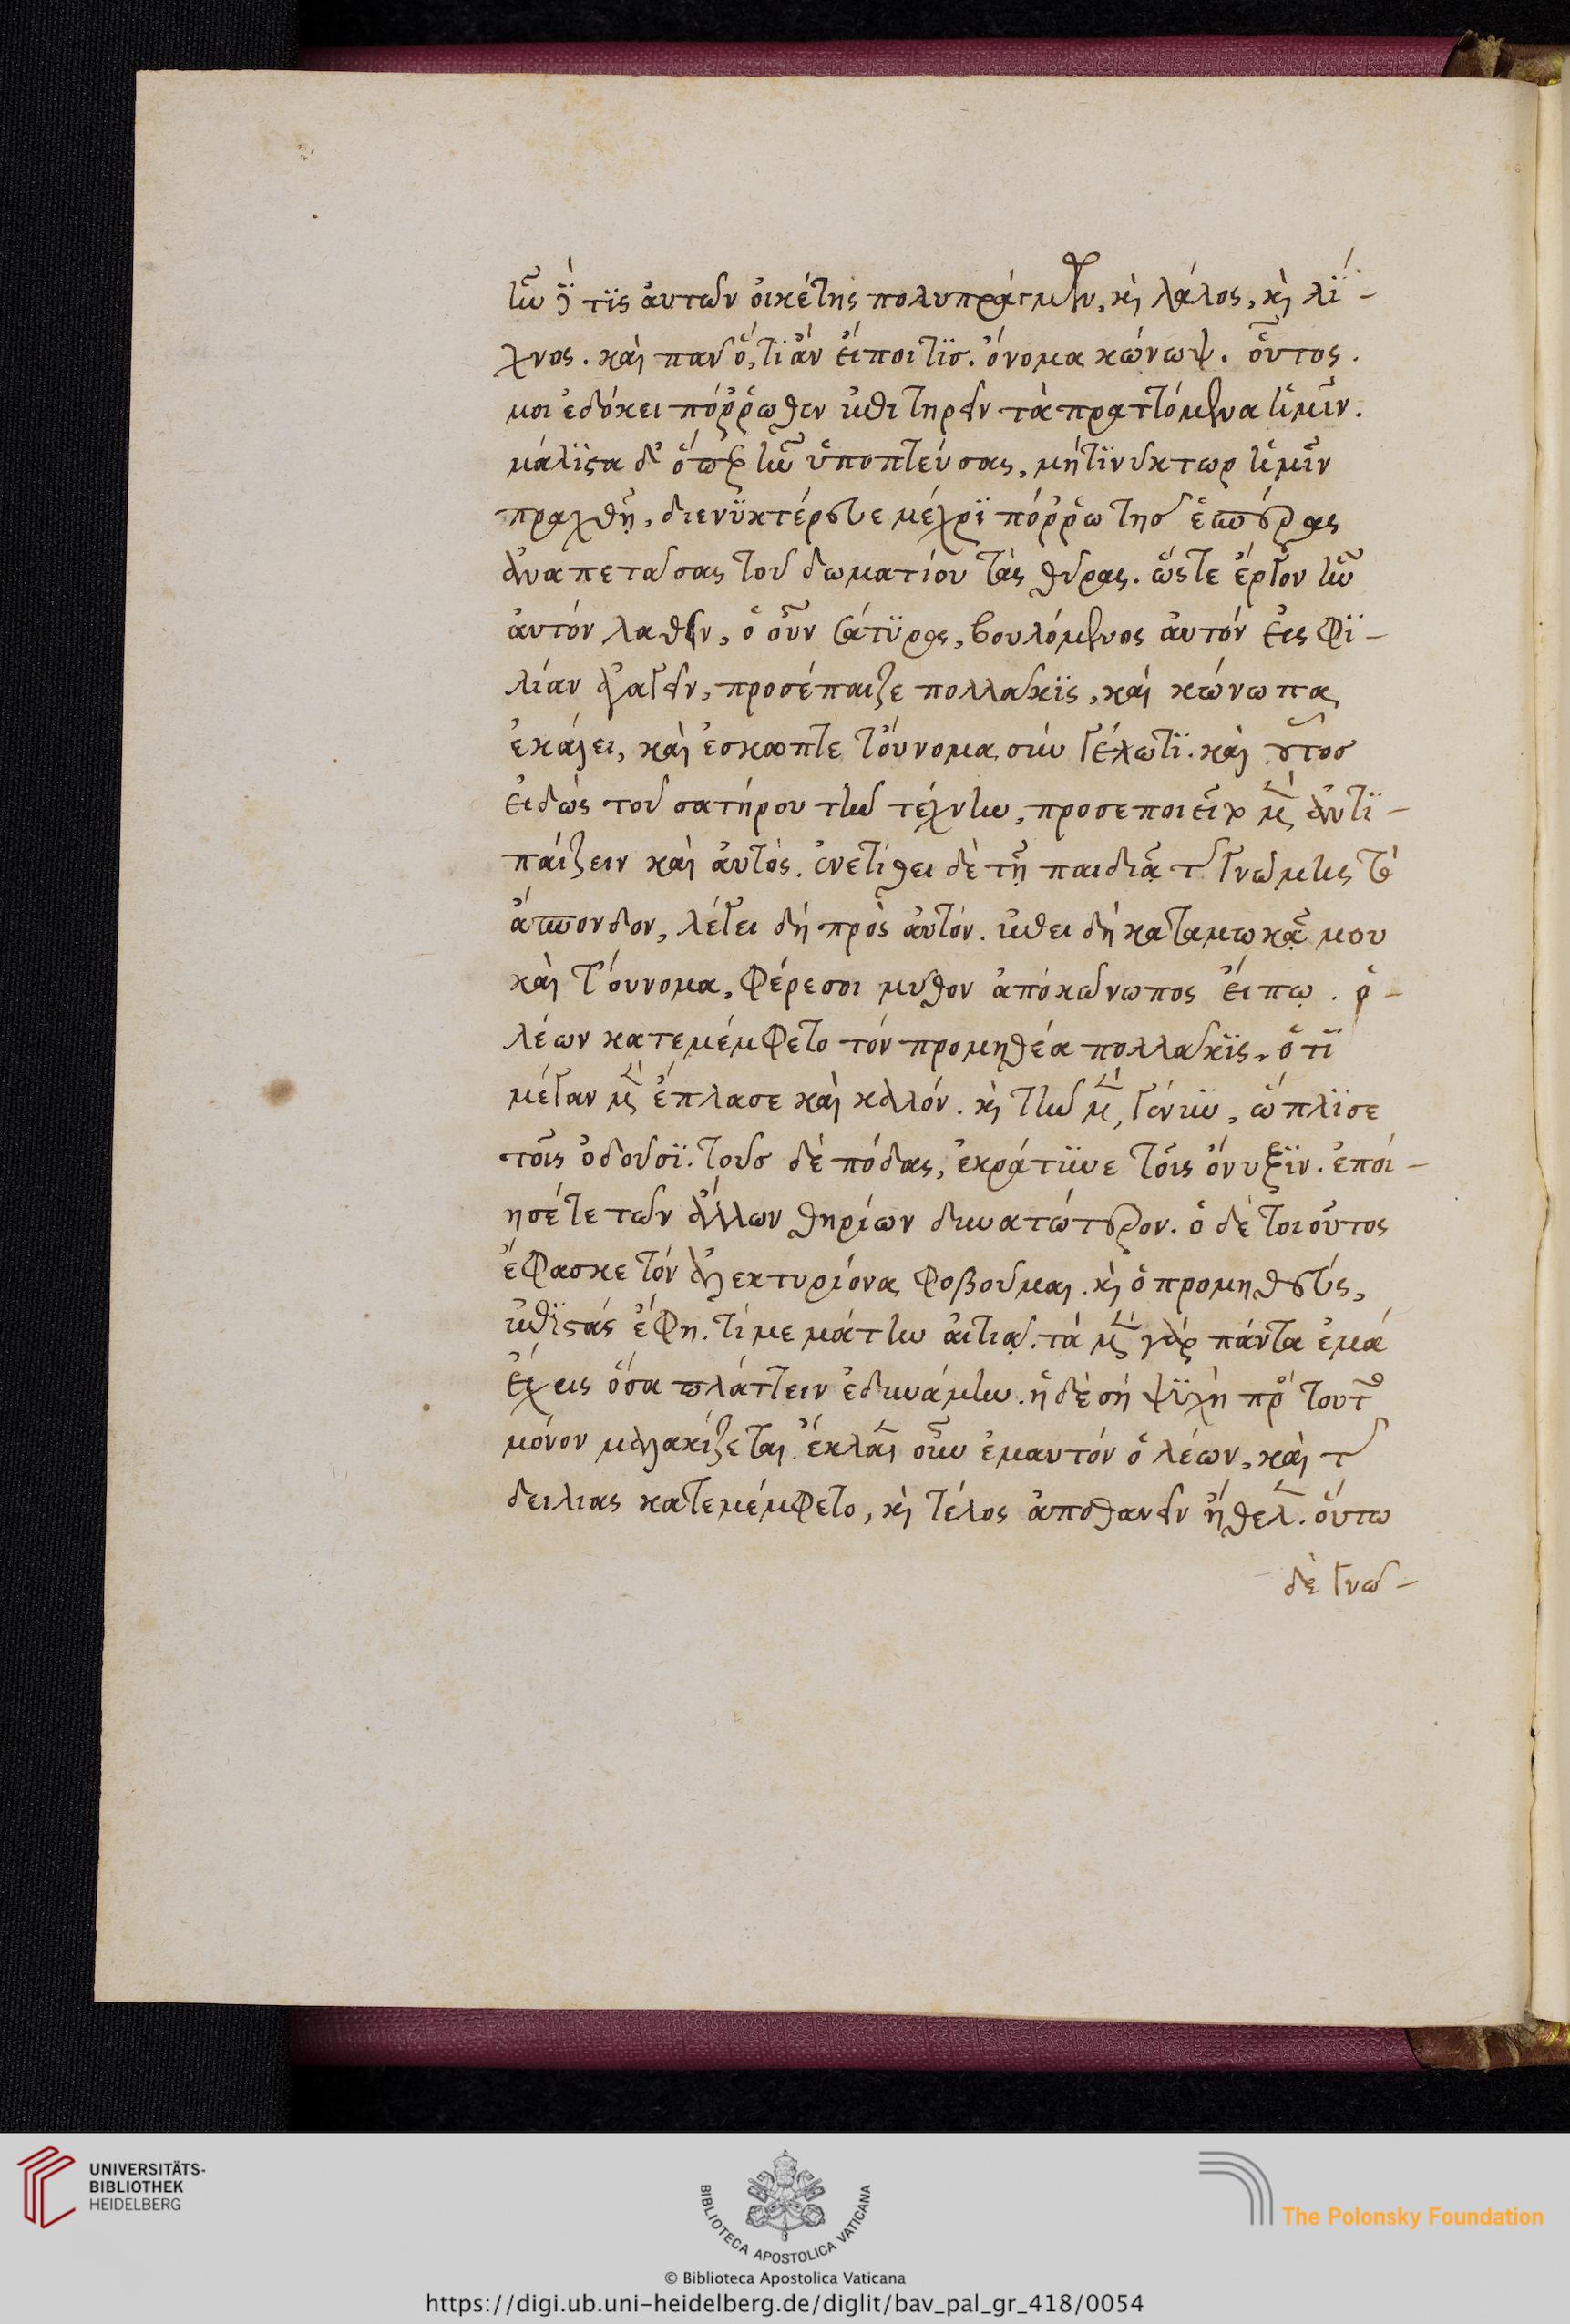 ἦν δέ τις ἀυτῶν ὀικέτης πολυπράγμων, κὶ λάλος, κὶ λί-
χνος. καὶ πᾶν ὅ,τι ἂν ἔιποι τὶσ. ὄνομα κώνωψ. οὗτος.
μοι ἐδόκει πόῤῥωθεν ἐπιτηρεῖν τὰ πραττόμενα ἡμῖν.
μάλιστα δ' ὅπερ ἦν ὑποπτεύσας, μή τι νύκτωρ ἡμῖν
πραχθῆ, διενυκτέρευε μέχρι πόῤῥω τῆσ ἑσπέρας
ἀναπετάσας τοῦ δωματίου τὰς θύρας. ὥστε ἔργον ἦν
ἀυτόν λαθεῖν, ὁ οὖν σάτυρος, βουλόμενος ἀυτόν ἐις φι-
λίαν ἀγαγεῖν, προσέπαιζε πολλάκις, καὶ κώνωπα
ἐκάλει, καὶ ἔσκωπτε τοὔνομα σὺν γέλωτι. καὶ οὗτοσ
ἐιδὼς τοῦ σατήρου τὴν τέχνην, προσεποιεῖτο μὲν ἀντι-
πάιζειν καὶ ἀυτὸς. ἐνετίθει δὲ τῆ παιδιᾶ τῆς γνώμης τὸ
ἄσπονδον, λέγει δή πρὸς ἀυτόν. ἐπει δὴ καταμωκᾶ μου
καὶ τ'όυνομα, φέρε σοι μῦθον ἀπό κώνωπος ἔιπω. ὁ-
λέων κατεμέμφετο τόν προμηθέα πολλάκις, ὅτι
μέγαν μὲν ἔπλασε καὶ καλόν. κὶ τὴν μὲν, γένυν, ὥπλισε
τοῖς ὀδοῦσι. τοὺσ δέ πόδας, ἐκράτυνε τοῖς ὄνυξιν. ἐποί-
ησέ τε τῶν ἄλλων θηρίων δυνατώτερον. ὁ δὲ τοιοῦτος
ἔφασκε τόν ἀλεκτυρίονα φοβοῦμαι. κὶ ὁ προμηθεύς,
ἐπιστάς ἔφη. τί με μάτην ἀιτιᾶ. τά μὲν γὰρ πάντα ἐμά
ἔχεις ὅσα πλάττειν ἐδυνάμην. ἡ δέ σή ψυχὴ πρὸς τοῦτο
μόνον μαλακίζεται. ἔκλαιεν οὖν ἐμαυτόν ὁ λέων, καὶ τῆς
δειλιας κατεμέμφετο, κὶ τέλος ἀποθανεῖν ἤθελεν. οὕτω
δὲ γνώ-
UNIVERSITÄTS-
BIBLIOTHEK
HEIDELBERG
BIBLIOTECA APOSTOLICA VATICANA
The Polonsky Foundation
© Biblioteca Apostolica Vaticana
https://digi.ub.uni-heidelberg.de/diglit/bav_pal_gr_418/0054